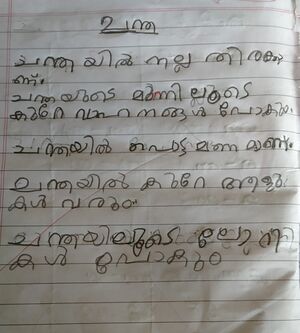 ചന്ത
ചന്തയിൽ നല്ല തിരക്കാ
ണ്.
ചന്തയുടെ മുന്നിലൂടെ
കുറേ വാഹനങ്ങൾ പോകും.
ചന്തയിൽ പൊട്ട മണമാണ്.
ചന്തയിൽ കുറേ ആളു
കൾ വരും.
ചന്തയിലൂടെ ലോറി
കൾ പോകും